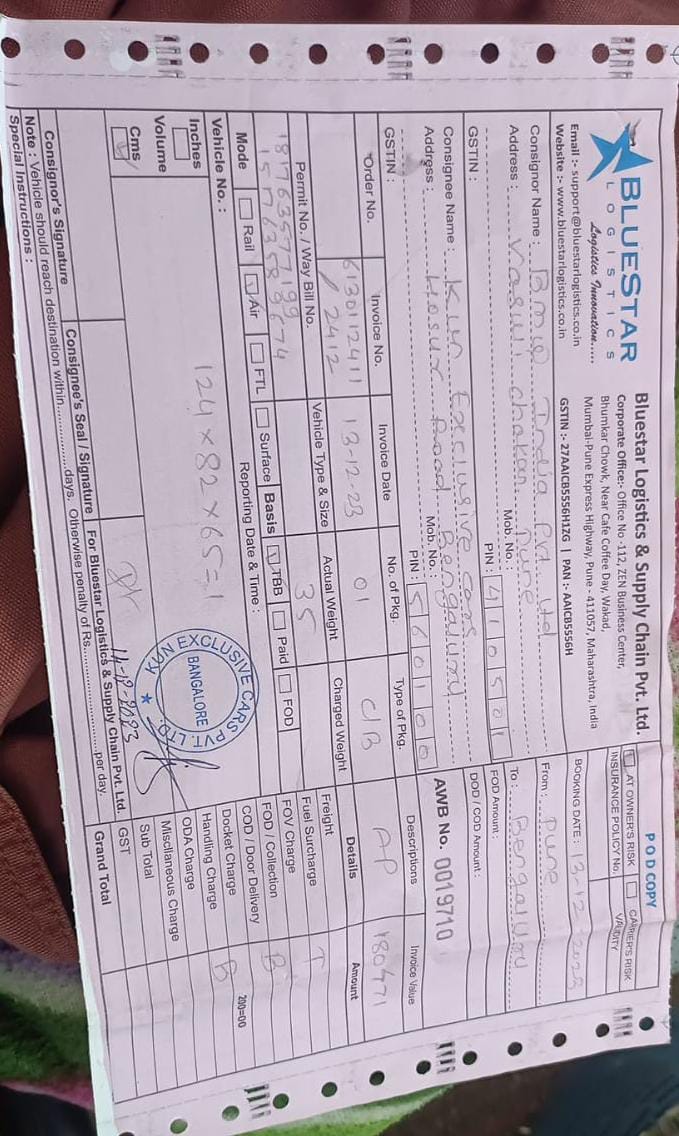 BLUESTAR
LOGISTICS
Logistics Innovation.....
Email :- support@bluestarlogistics.co.in
Website :- www.bluestarlogistics.co.in
Bluestar Logistics & Supply Chain Pvt. Ltd.
Corporate Office:- Office No -112, ZEN Business Center,
Bhumkar Chowk, Near Cafe Coffee Day, Wakad,
Mumbai-Pune Express Highway, Pune - 411057, Maharashtra, India
GSTIN :- 27AAICB5556H1ZG | PAN :- AAICB5556H
POD COPY
AT OWNER'S RISK CARRIER'S RISK
INSURANCE POLICY No. VALIDITY
BOOKING DATE : 13-12-2023
From : Pune
To : Bengalury
FOD Amount :
DOD / COD Amount :
AWB No. 0019710
Consignor Name : BMW India Pvt. Ltd
Address : Vasuli chakan Pune
Mob. No. :
PIN : 410501
GSTIN :
Consignee Name : Kun Execlusive cars
Address : Hosur Road Bengalury
Mob. No. :
PIN : 560100
GSTIN :
Order No. Invoice No. Invoice Date No. of Pkg. Type of Pkg. Descriptions Invoice Value
6130112411 13-12-23 01 C/B AP 180471
/ 2412
Permit No. / Way Bill No. Vehicle Type & Size Actual Weight Charged Weight Details Amount
181763577199 35
151763583674
Mode Rail Air FTL Surface Basis TBB Paid FOD
Vehicle No. : Reporting Date & Time :
Inches
Volume
Cms
124×82×65=1
KUN EXCLUSIVE CARS PVT. LTD.
BANGALORE
14-12-2023
Freight
Fuel Surcharge T
FOV Charge
FOD / Collection B
COD / Door Delivery
Docket Charge 200=00
Handling Charge B
ODA Charge
Miscllaneous Charge
Sub Total
GST
Grand Total
Consignor's Signature
Consignee's Seal / Signature
For Bluestar Logistics & Supply Chain Pvt. Ltd.
Note : Vehicle should reach destination within..................days. Otherwise penalty of Rs..............................per day.
Special Instructions :